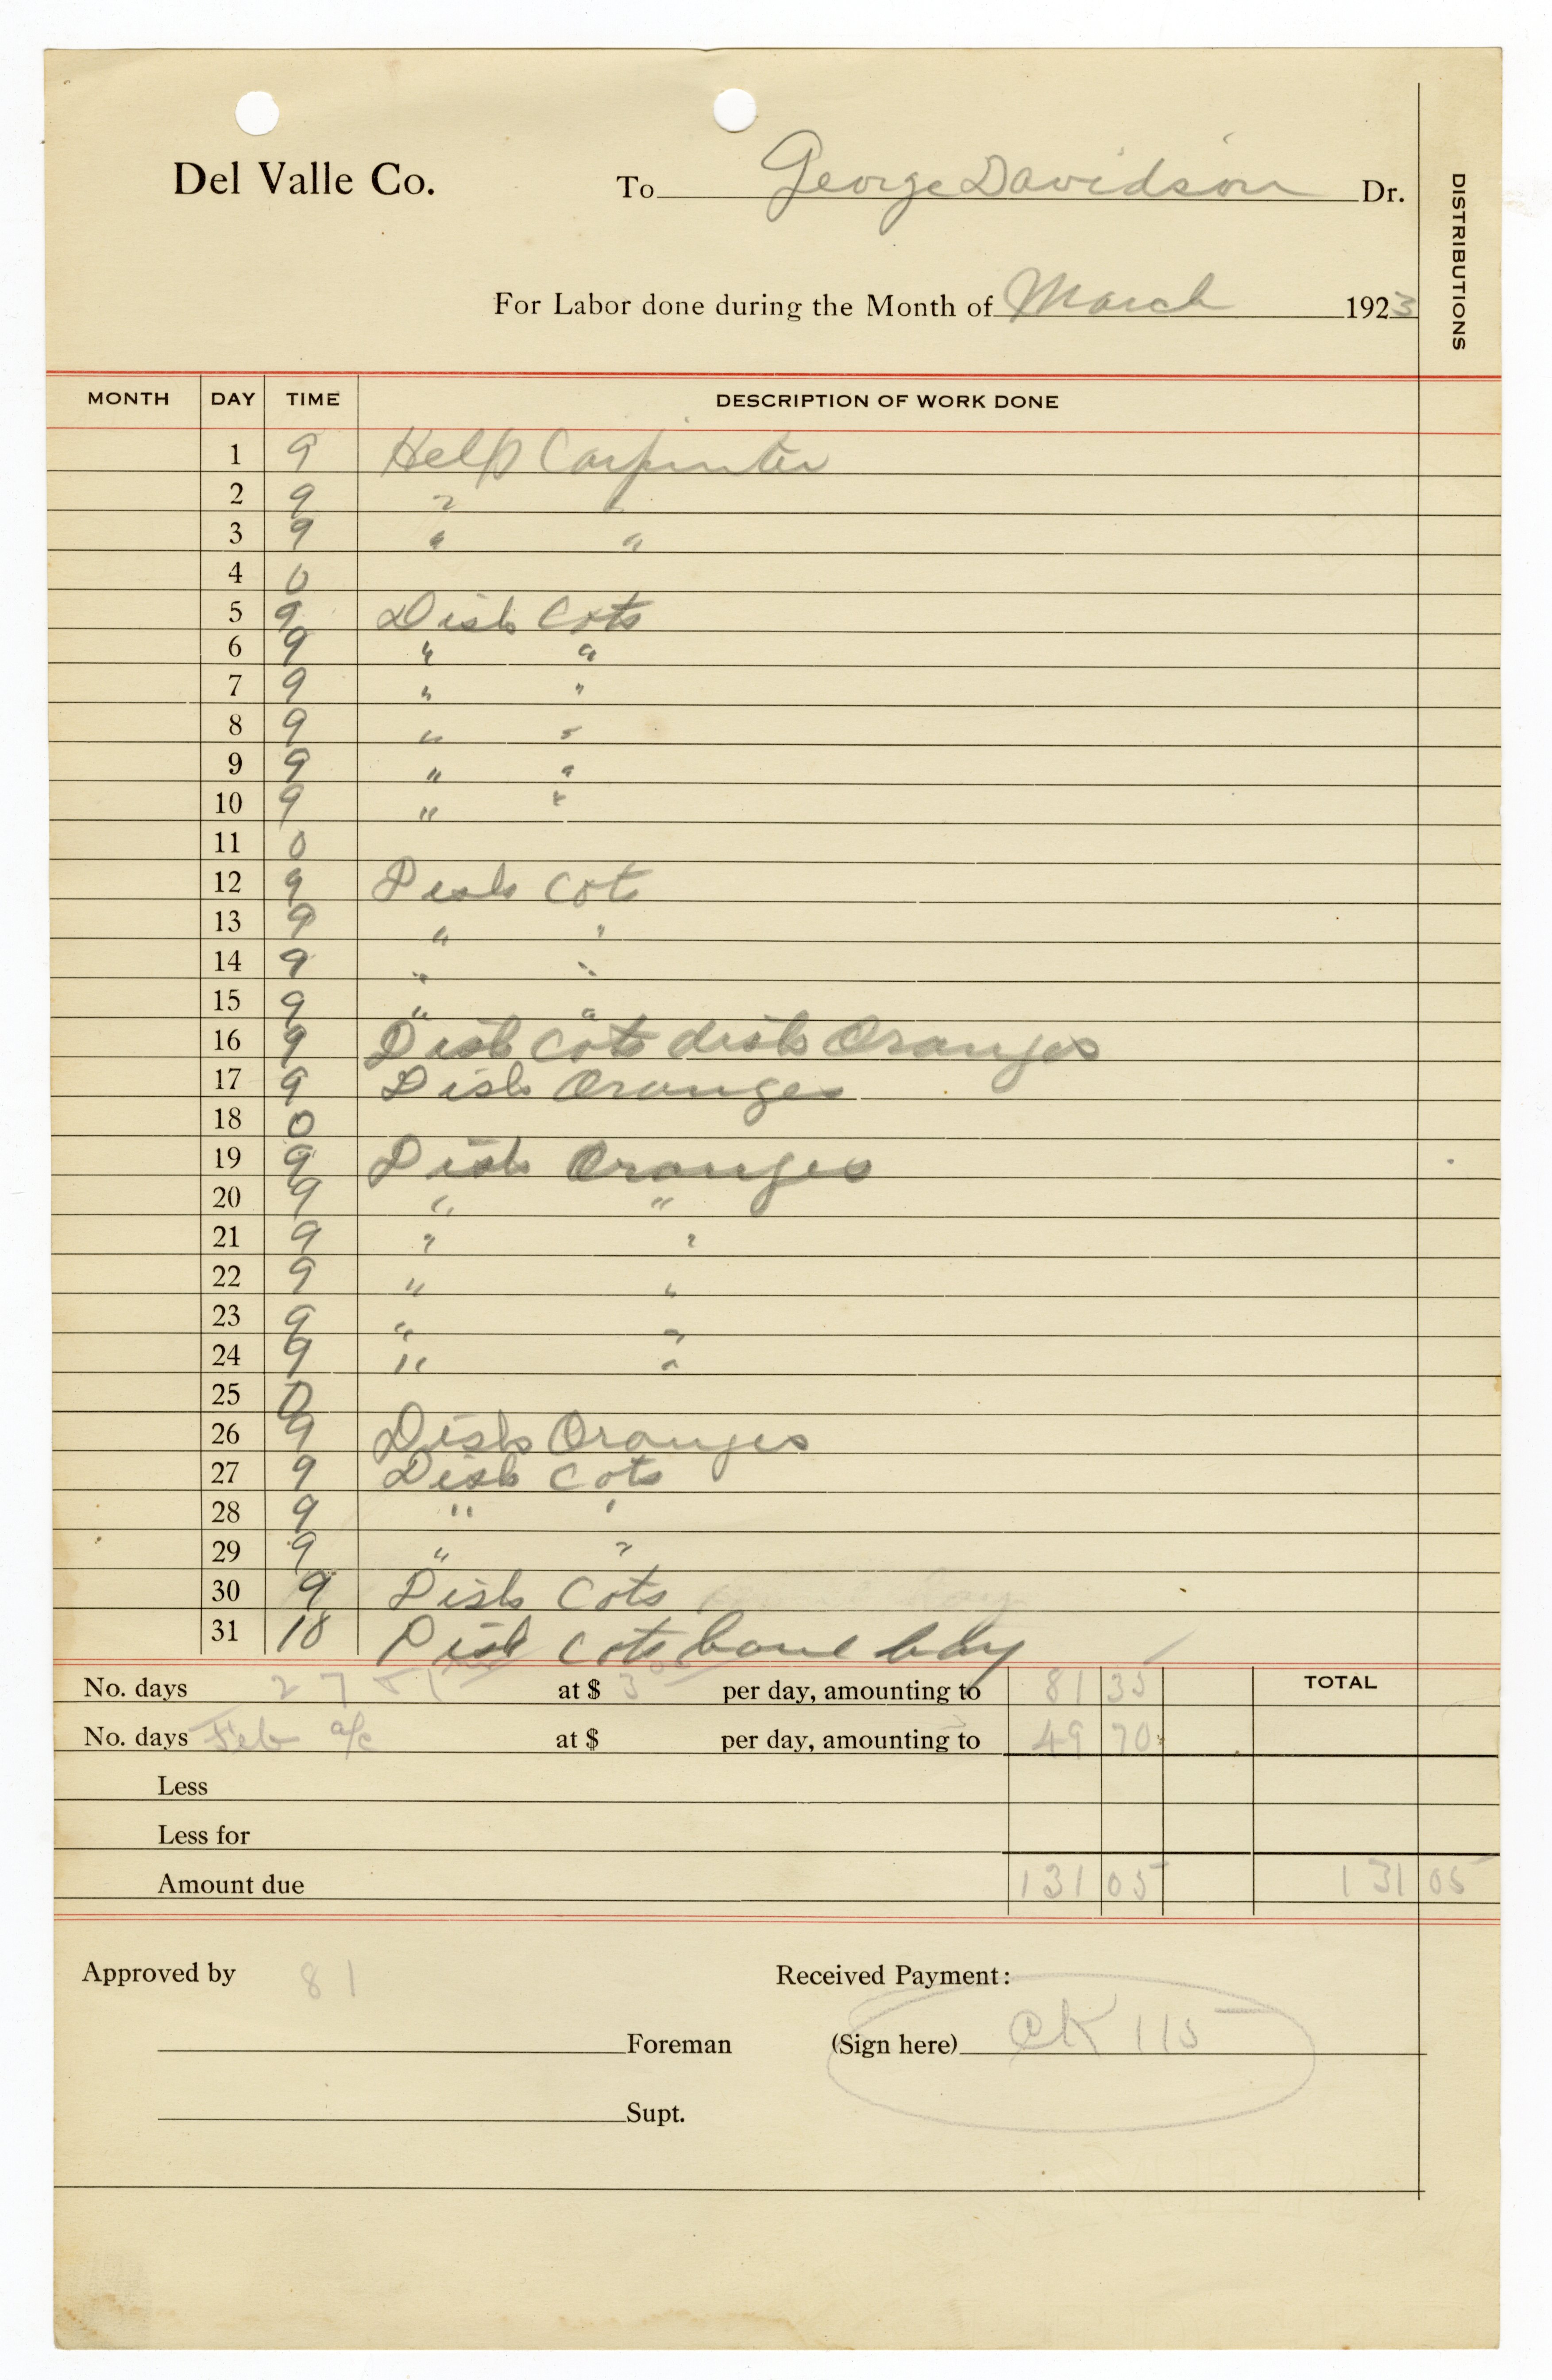 Del Valle Co. To George Davidson Dr.
DISTRIBUTIONS
For Labor done during the Month of March 1923
MONTH DAY TIME DESCRIPTION OF WORK DONE
1 9 Help Carpinter
2 9 " "
3 9 " "
4 0
5 9 Disk Cots
6 9 " "
7 9 " "
8 9 " "
9 9 " "
10 9 " "
11 0
12 9 Disk Cots
13 9 " "
14 9 " "
15 9 " "
16 9 Disk Cots disk Oranges
17 9 Disk Oranges
18 0
19 9 Disk Oranges
20 9 " "
21 9 " "
22 9 " "
23 9 " "
24 9 " "
25 0
26 9 Disk Oranges
27 9 Disk Cots
28 9 " "
29 9 " "
30 9 Disk Cots
31 10 Disk Cots haul hay
No. days 27 at $ 3 00 per day, amounting to 81 35 TOTAL
No. days Feb a/c at $ per day, amounting to 49 70
Less
Less for
Amount due 131 05 131 05
Approved by 81 Received Payment:
Foreman (Sign here) CK 115
Supt.